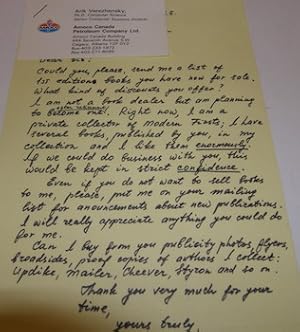 Arik Verezhensky,
Ph.D., Computer Science
Senior Computer Systems Analyst
Amoco Canada
Petroleum Company Ltd.
Amoco Canada Building
444 Seventh Avenue S.W.
Calgary, Alberta T2P 0Y2
Dear Sir:
Could you, please, send me a list of
1st editions books you have now for sale.
What kind of discounts you offer?
I am not a book dealer but am planning
to become one. Right now, I am a
private collector of Modern Firsts; I have
several books, published by you, in my
collection and I like them enormously.
If we could do business with you, this
would be kept in strict confidence.
Even if you do not want to sell books
to me, please, put me on your mailing
list for anouncements about new publications.
I will really appreciate anything you could do
for me.
Can I buy from you publicity photos, flyers,
broadsides, proof copies of authors I collect:
Updike, Mailer, Cheever, Styron and so on.
Thank you very much for your
time,
yours truly,